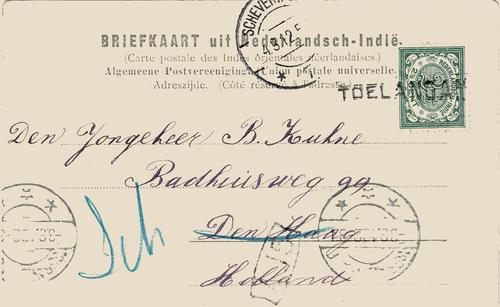 BRIEFKAART uit Nederlandsch-Indië.
(Carte postale des Indes orientales néerlandaises.)
Algemeene Postvereeniging. Union postale universelle.
Adreszijde. (Côté réservé à l'adresse.)
TOELANGAN
Den Jongeheer B. Kuhne
Badhuisweg 99
Den Haag
Holland
Sch